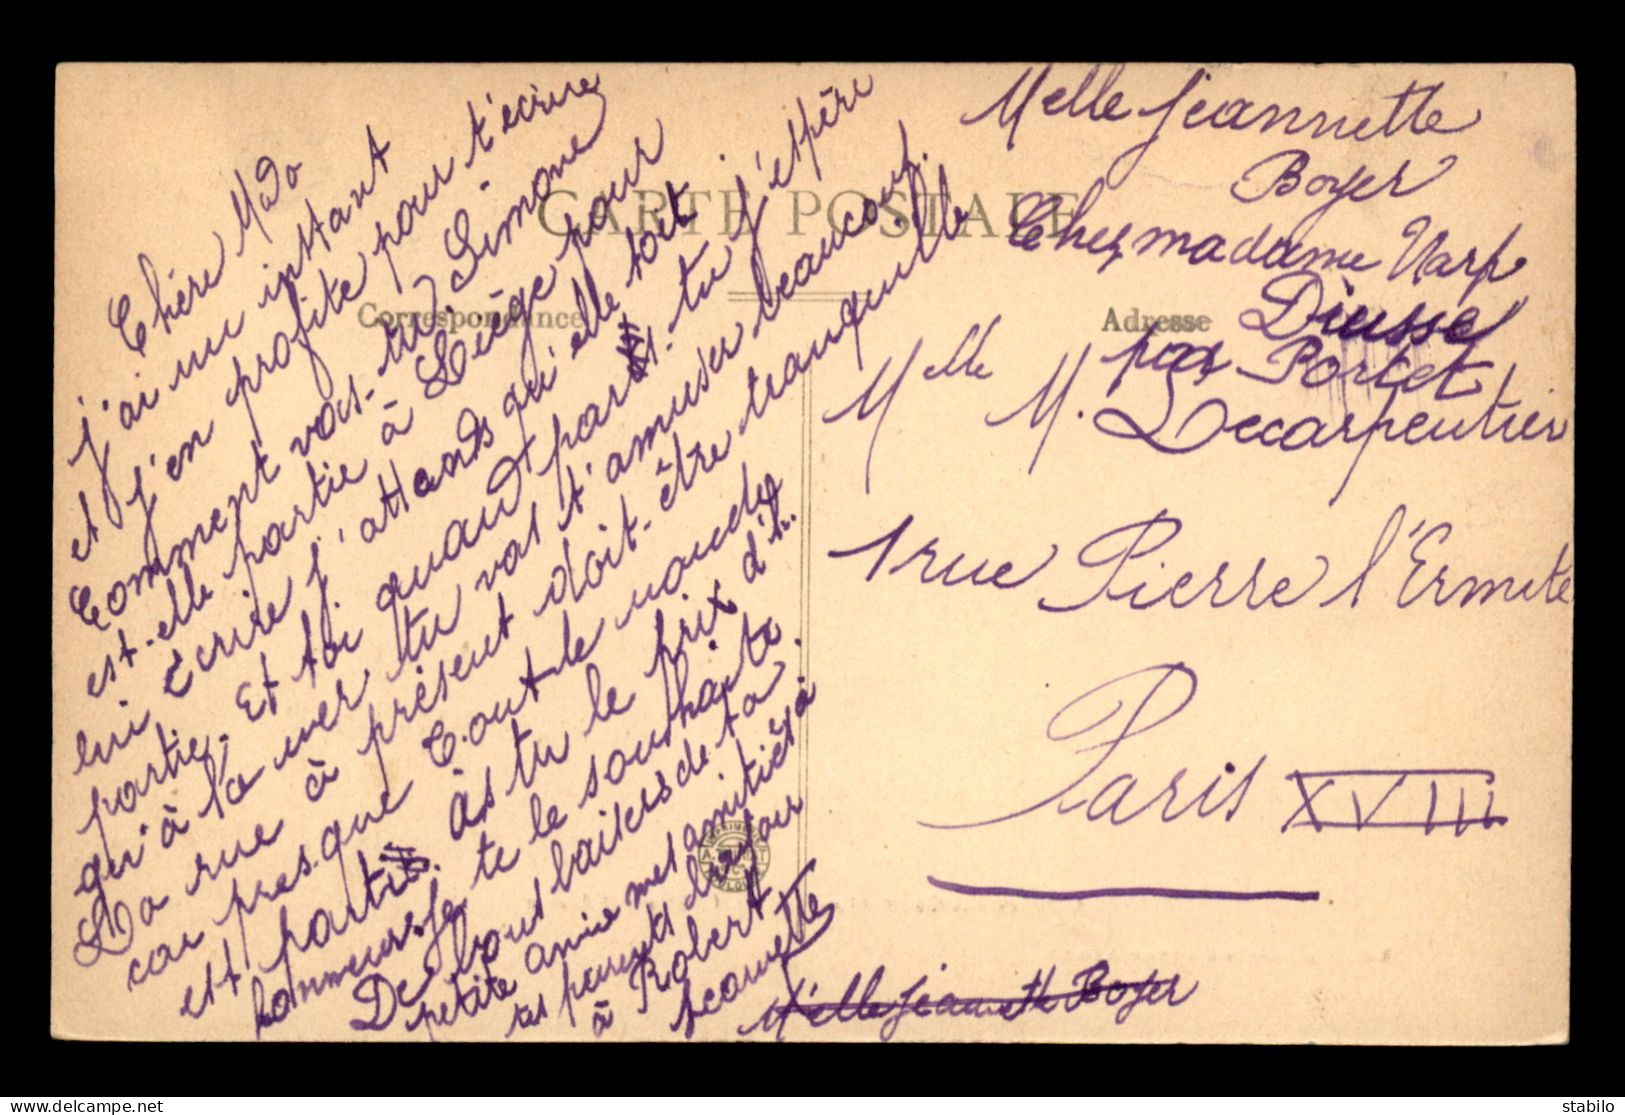 CARTE POSTALE
Correspondance
Adresse
Chère Mado
j'ai un instant
et j'en profite pour t'écrire
Comment vas-tu? Simone
est-elle partie à Liège pour
lui écrire j'attends qu'elle soit
partie. Et toi quand pars-tu j'espère
qu'à la mer tu vas t'amuser beaucoup.
La rue à présent doit-être tranquille
car presque tout le monde
est partis. As tu le prix d'
honneur. Je te le souhaite.
De bons baisers de ta
petite amie mes amitiés à
tes parents
à Robert
Jeannette
Melle Jeannette Boyer
Melle Jeannette
Boyer
Chez madame Narp
Diusse
par Portet
Melle M. Decarpentier
1 rue Pierre l'Ermite
Paris XVIII
stabilo